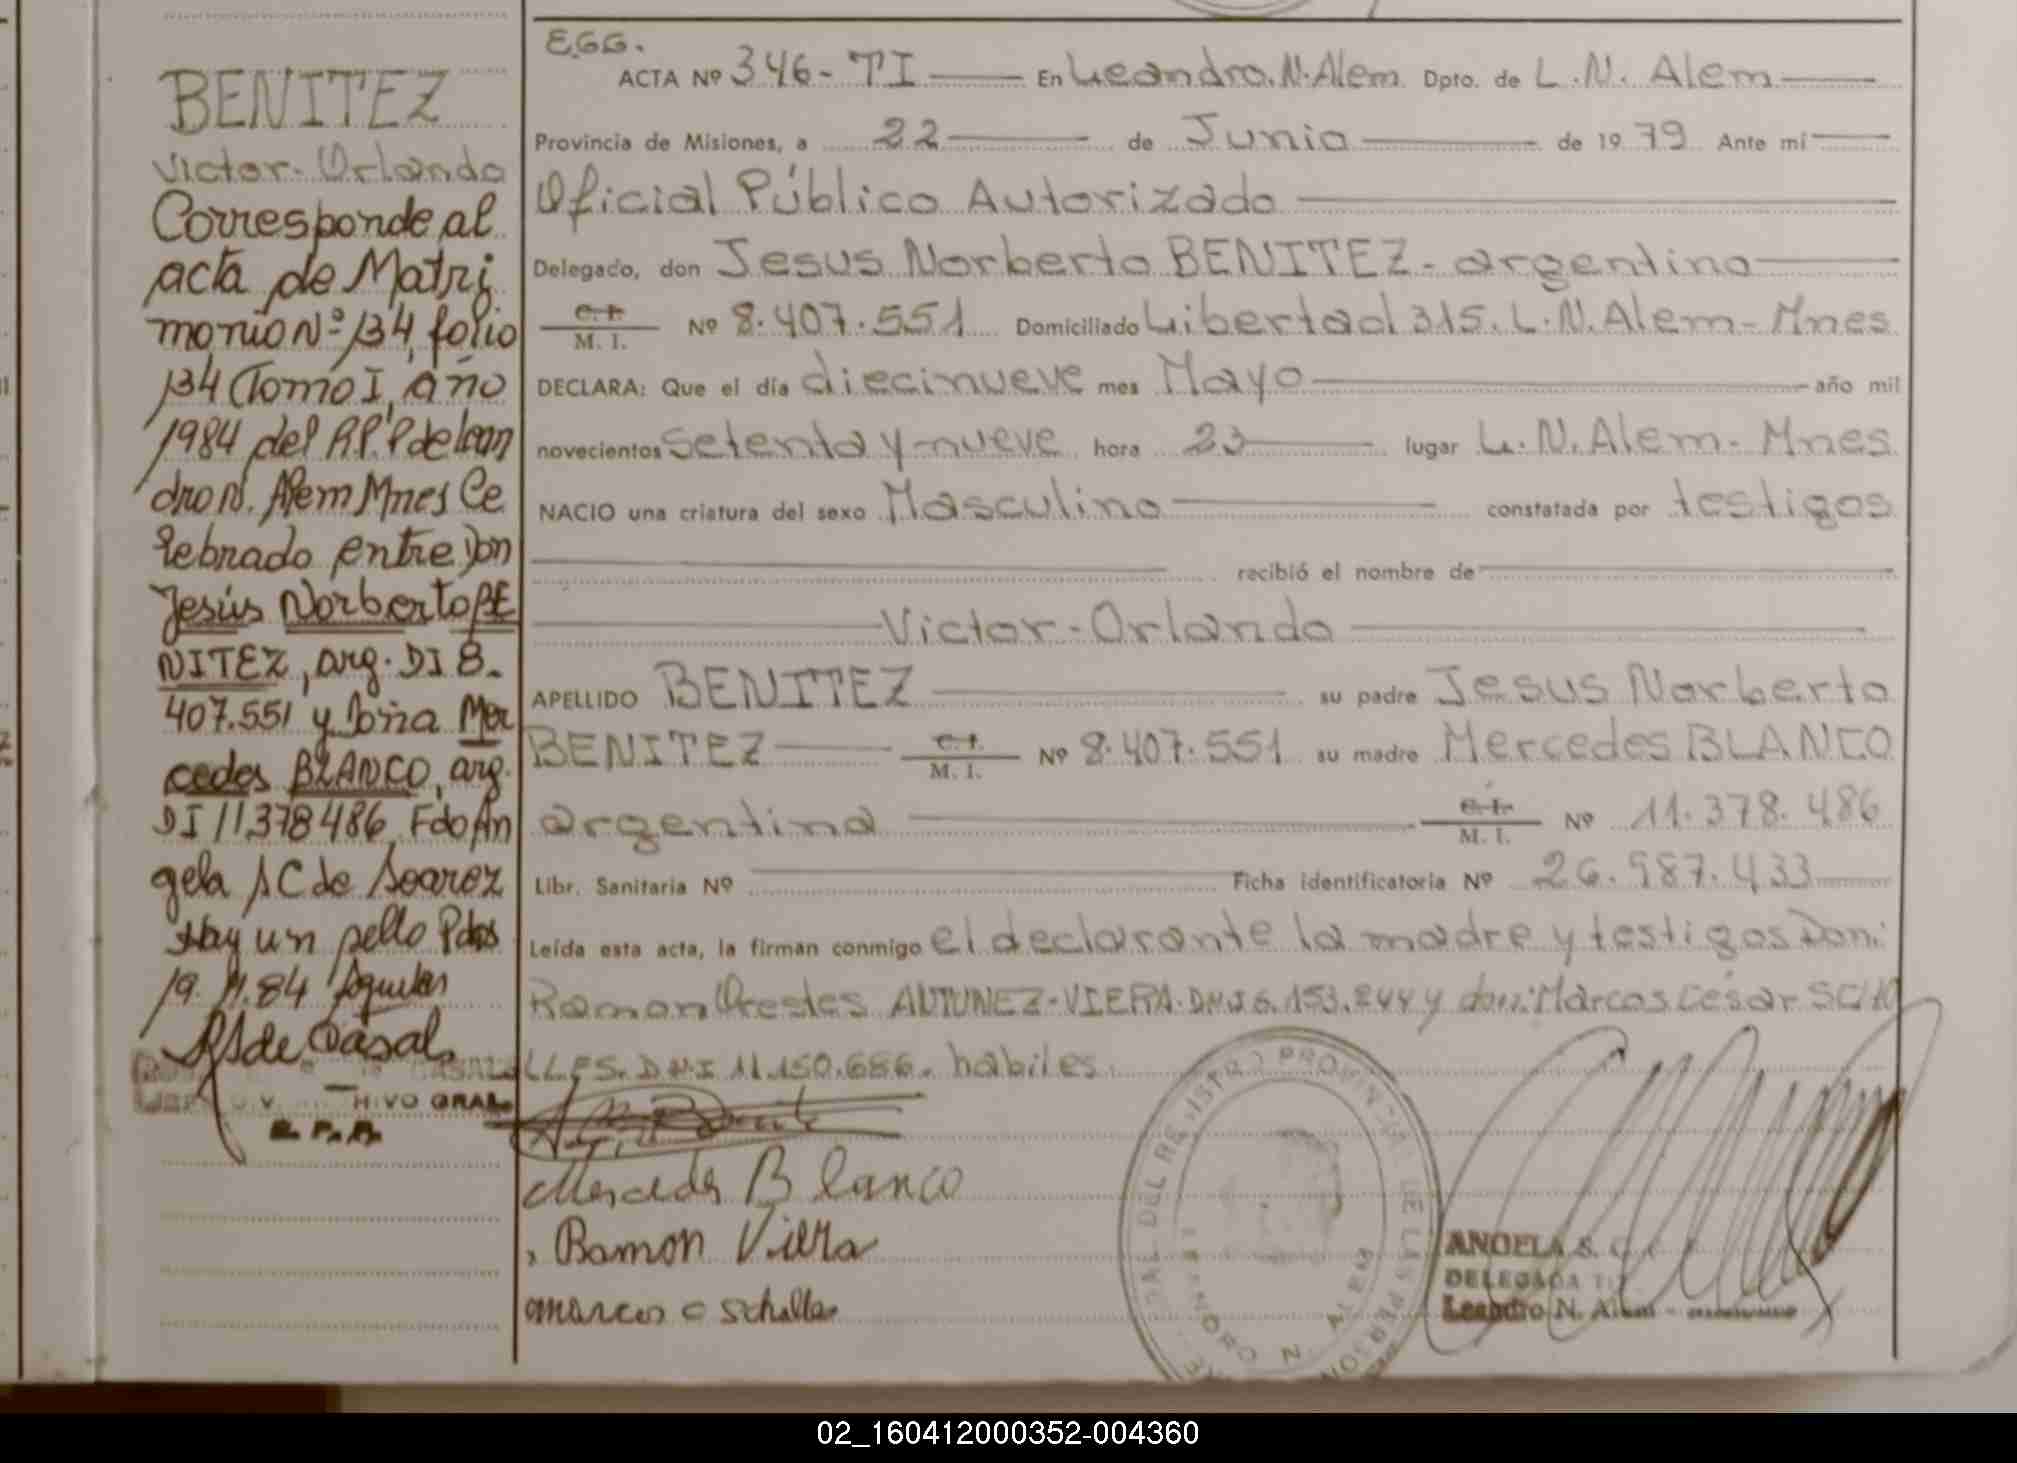 BENITEZ
Victor-Orlando
Corresponde al
acta de Matri
monio Nº 134, folio
134 (Tomo I, año
1984 del R.P.P de lean
dro N. Alem Mnes Ce
lebrado entre Don
Jesús Norberto BE
NITEZ, arg. DI 8.
407.551 y Doña Mer
cedes BLANCO, arg.
DI 11378486 Fdo An
gela S C de Soarez
Hay un sello Pdas
19.11.84
de Casal
CASAL
HIVO GRAL.
R. P. P.
E.G.G.
ACTA Nº 346-TI En Leandro.N.Alem Dpto. de L.N. Alem
Provincia de Misiones, a 22 de Junio de 1979 Ante mí
Oficial Público Autorizado
Delegado, don Jesus Norberto BENITEZ-argentino
C. I.
M. I. Nº 8.407.551 Domiciliado Libertad 315. L.N.Alem-Mnes
DECLARA: Que el día diecinueve mes Mayo año mil
novecientos setenta y nueve hora 23 lugar L.N.Alem-Mnes
NACIO una criatura del sexo Masculino constatada por testigos
recibió el nombre de
Victor-Orlando
APELLIDO BENITEZ su padre Jesus Norberto
BENITEZ C. I. M. I. Nº 8.407.551 su madre Mercedes BLANCO
argentina C. I. M. I. Nº 11.378.486
Libr. Sanitaria Nº Ficha identificatoria Nº 26.987.433
Leída esta acta, la firman conmigo el declarante la madre y testigos Don:
Ramon Orestes ANTUNEZ-VIERA.DNI 6.153.244 y don: Marcos César SCHO
LLES. DNI 11.150.686. habiles
Mercedes Blanco
Ramon Viera
marcos c scholles
REGISTRO PROVINCIAL DE LAS PERSONAS
ANGELA S. C.
DELEGADA TIT
Leandro N. Alem
02_160412000352-004360